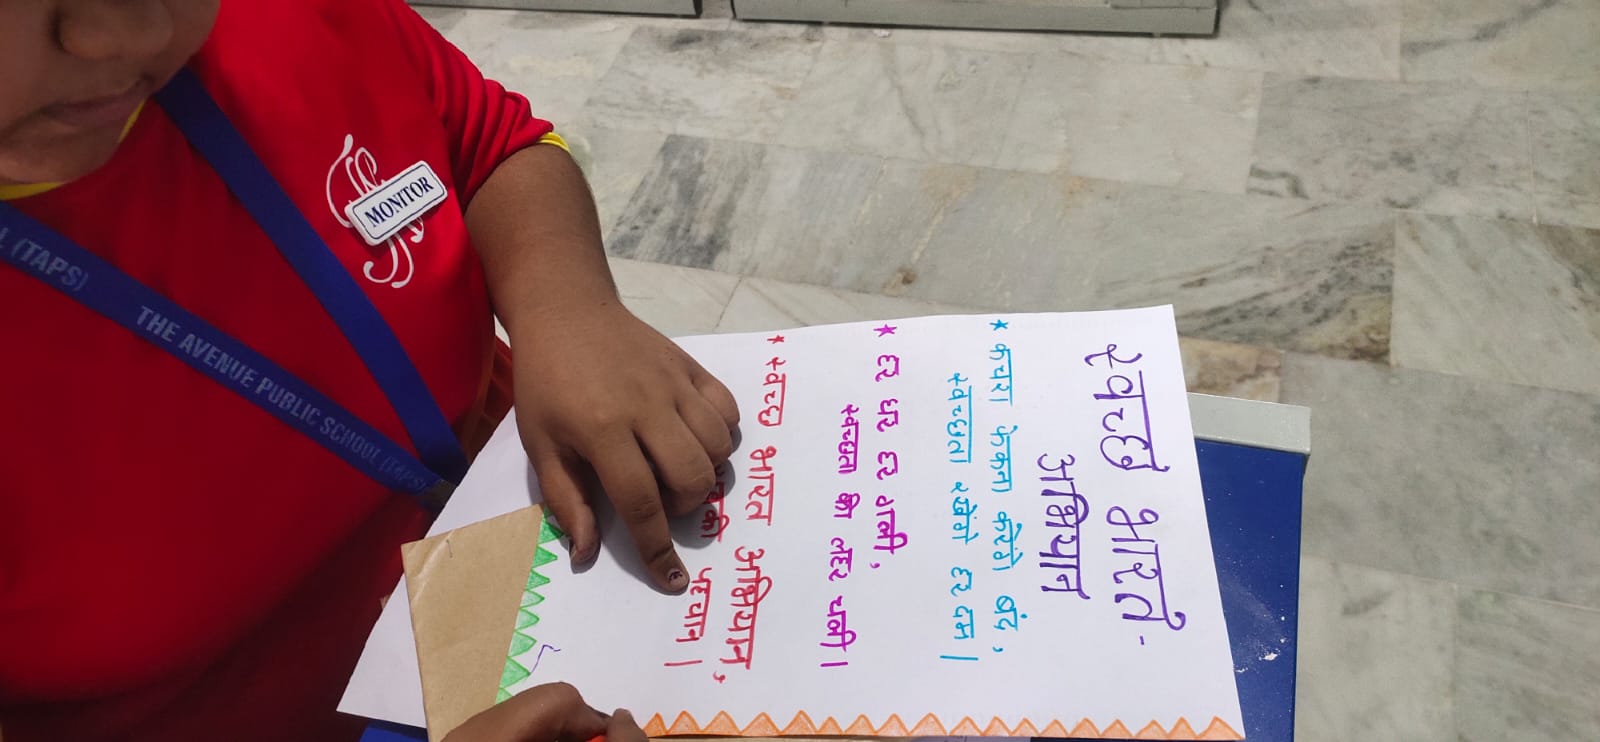 स्वच्छ भारत-
अभियान
* कचरा फेकना करेंगे बंद,
स्वच्छता रखेंगे हर दम।
* हर घर हर गली,
स्वच्छता की लहर चली।
* स्वच्छ भारत अभियान,
पहचान।
MONITOR
(TAPS) THE AVENUE PUBLIC SCHOOL (TAPS)